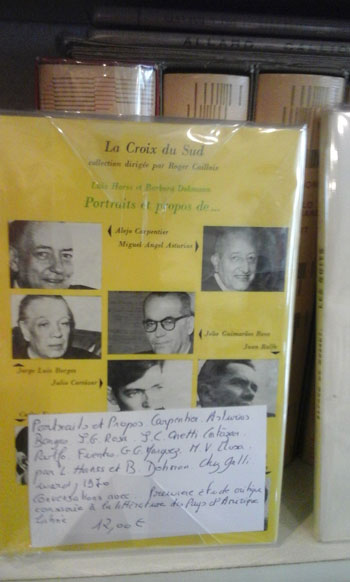 ALLARD
La Croix du Sud
collection dirigée par Roger Caillois
Luis Harss et Barbara Dohmann
Portraits et propos de...
Alejo Carpentier
Miguel Angel Asturias
João Guimarães Rosa
Juan Rulfo
Jorge Luis Borges
Julio Cortázar
Portraits et Propos Carpentier. Asturias
Borges J.G. Rosa. J.C. Onetti Cortázar.
Rulfo Fuentes. G.G. Marquez. M.V. Llosa.
par L Harss et B. Dohmann Chez Galli
mard, 1970
Conversations avec Première étude critique
consacrée à la littérature des Pays d'Amérique
Latine
12,00€